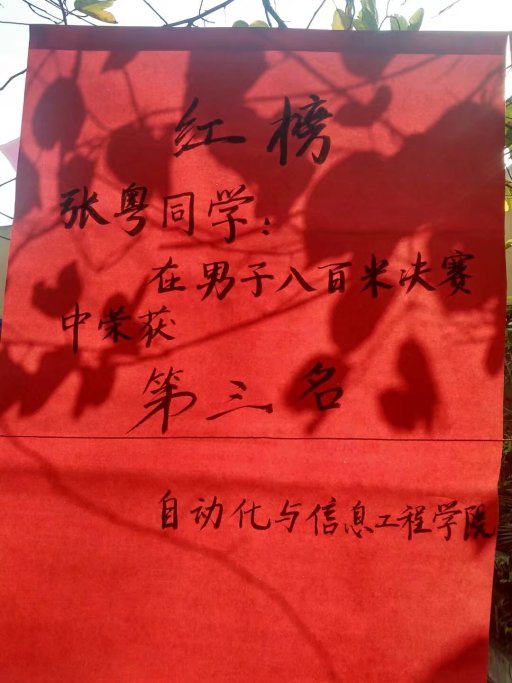 红榜
张粤同学：
在男子八百米决赛
中荣获
第三名
自动化与信息工程学院